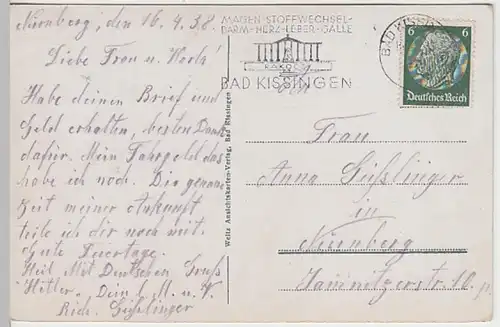 Nürnberg, den 16.4.38.
Liebe Frau u.
Habe deinen Brief und
Geld erhalten, besten Dank
dafür. Mein Fahrgeld das
habe ich noch. Die genaue
Zeit meiner Ankunft
teile ich dir noch mit.
Gute Feiertage.
Heil Mit Deutschen Gruß
Hitler. Dein l. M. u. V.
Rich. Güßlinger
Welte Ansichtskarten-Verlag, Bad Kissingen
MAGEN-STOFFWECHSEL-
DARM-HERZ-LEBER-GALLE
RAKOCZY
BAD KISSINGEN
BAD KISSINGEN
6 6
Deutsches Reich
Frau
Anna Güßlinger
in
Nürnberg
Jamnitzerstr.